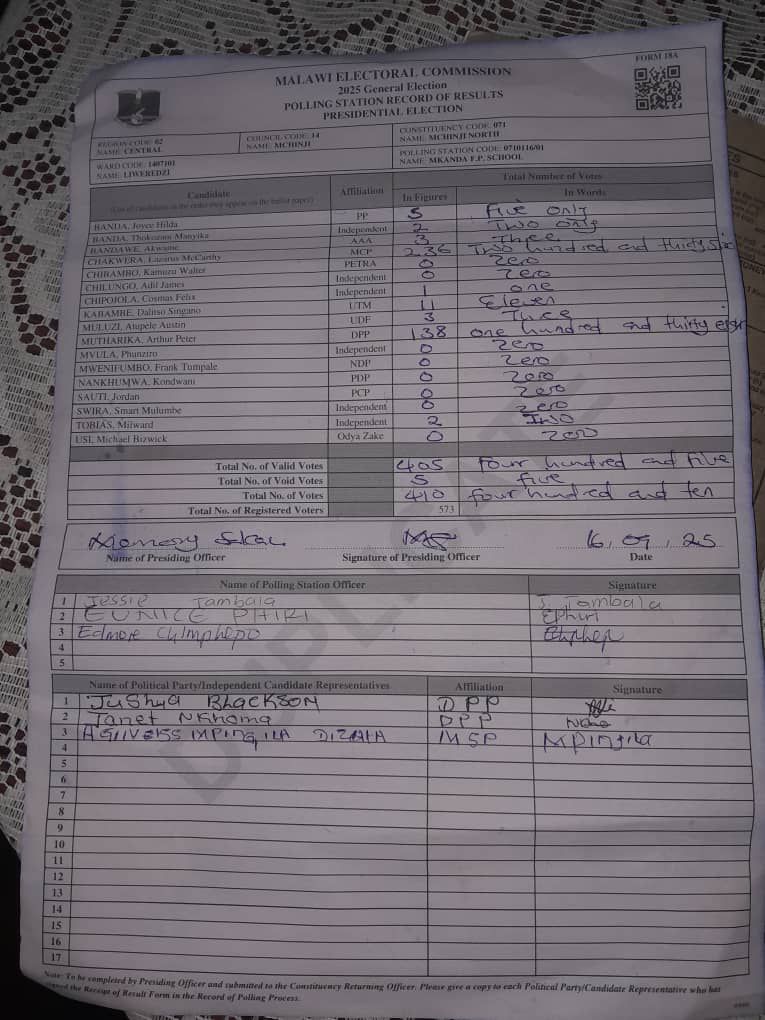 FORM 18A
MALAWI ELECTORAL COMMISSION
2025 General Election
POLLING STATION RECORD OF RESULTS
PRESIDENTIAL ELECTION
REGION CODE: 02 COUNCIL CODE: 14 CONSTITUENCY CODE: 071
NAME: CENTRAL NAME: MCHINJI NAME: MCHINJI NORTH
WARD CODE: 1407101 POLLING STATION CODE: 0710116/01
NAME: LIWEREDZI NAME: MKANDA F.P. SCHOOL
Candidate Affiliation Total Number of Votes
(List of candidates in the order they appear on the ballot paper) In Figures In Words
BANDA, Joyce Hilda PP 5 Five only
BANDA, Thokozani Manyika Independent 2 Two only
BANDAWE, Akwame AAA 3 Three
CHAKWERA, Lazarus McCarthy MCP 236 Two hundred and thirty six
CHIBAMBO, Kamuzu Walter PETRA 0 Zero
CHILUNGO, Adil James Independent 0 Zero
CHIPOJOLA, Cosmas Felix Independent 1 one
KABAMBE, Dalitso Singano UTM 11 Eleven
MULUZI, Atupele Austin UDF 3 Three
MUTHARIKA, Arthur Peter DPP 138 one hundred and thirty eight
MVULA, Phunziro Independent 0 Zero
MWENIFUMBO, Frank Tumpale NDP 0 Zero
NANKHUMWA, Kondwani PDP 0 Zero
SAUTI, Jordan PCP 0 Zero
SWIRA, Smart Mulumbe Independent 0 Zero
TOBIAS, Milward Independent 2 Two
USI, Michael Bizwick Odya Zake 0 Zero
Total No. of Valid Votes 405 four hundred and five
Total No. of Void Votes 5 five
Total No. of Votes 410 four hundred and ten
Total No. of Registered Voters 573
16, 09, 25
Name of Presiding Officer Signature of Presiding Officer Date
Name of Polling Station Officer Signature
1 Jessie Tambala J. Tambala
2 EUNICE PHIRI EPhiri
3 Edmore Chimphepo
4
5
Name of Political Party/Independent Candidate Representatives Affiliation Signature
1 JuShua BLACKSON DPP
2 Janet Nkhoma DPP
3 MSP
4
5
6
7
8
9
10
11
12
13
14
15
16
17
Note: To be completed by Presiding Officer and submitted to the Constituency Returning Officer. Please give a copy to each Political Party/Candidate Representative who has
signed the Receipt of Result Form in the Record of Polling Process.
DUPLICATE